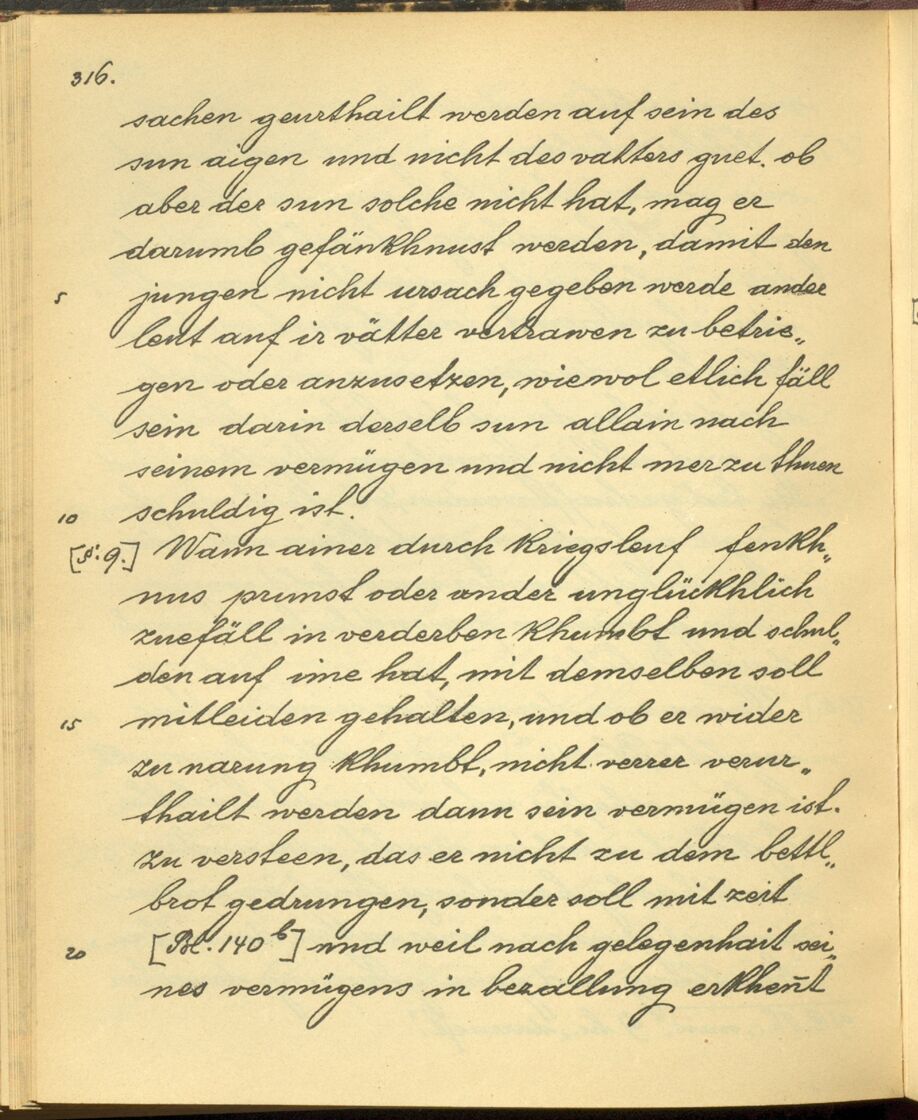 316.
sachen geurthailt werden auf sein des
sun aigen und nicht des vatters guet. ob
aber der sun solche nicht hat, mag er
darumb gefänkhnust werden, damit den
5 jungen nicht ursach gegeben werde ander
leut auf ir vätter vertrawen zu betrie„
gen oder anzusetzen, wiewol etlich fäll
sein darin derselb sun allain nach
seinem vermügen und nicht mer zu thuen
10 schuldig ist.
[§: 9.] Wann ainer durch kriegsleuf fenkh„
nus prunst oder ander unglückhlich
zuefäll in verderben khumbt und schul„
den auf ime hat, mit demselben soll
15 mitleiden gehalten, und ob er wider
zu narung khumbt, nicht verrer verur„
thailt werden dann sein vermügen ist.
zu versteen, das er nicht zu dem bettl„
brot gedrungen, sonder soll mit zeit
20 [Bl. 140 b] und weil nach gelegenhait sei„
nes vermügens in bezallung erkhen̄t